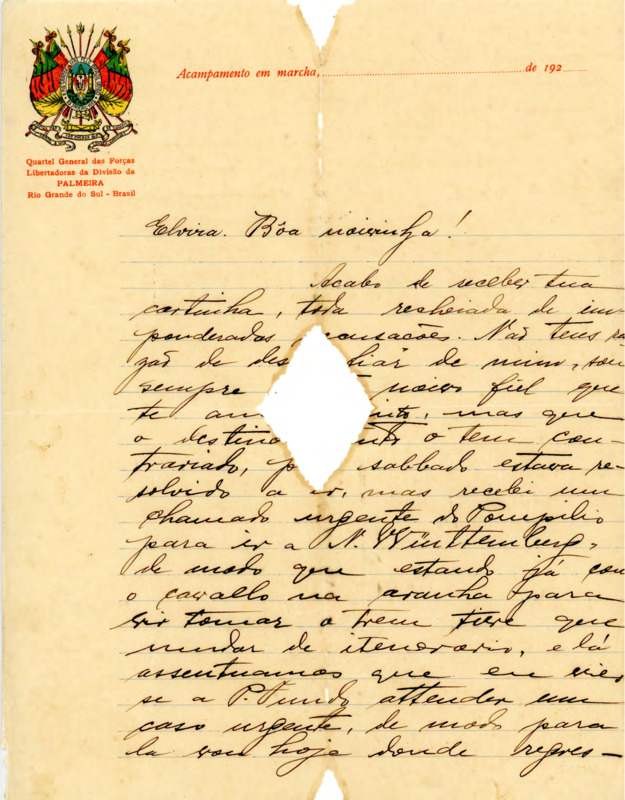 Acampamento em marcha, de 192
Quartel General das Forças
Libertadoras da Divisão da
PALMEIRA
Rio Grande do Sul - Brasil
Elvira. Bôa noivinha!
Acabo de receber tua
cartinha, toda recheiada de im
ponderadas cusações. Não tens ra
zão de des fiar de mim, sou
sempre noivo fiel que
te am into, mas que
o destino o tem con-
trariado, p sabbado estava re-
solvido a ir, mas recebi um
chamado urgente do Pompilio
para ir a N. Württemberg,
de modo que estando já com
o cavallo na aranha para
vir tomar o trem tive que
mudar de itenerario, e lá
assentuamos que eu vies
se a P. Fundo attender um
caso urgente, de modo para
la vou hoje donde regres-